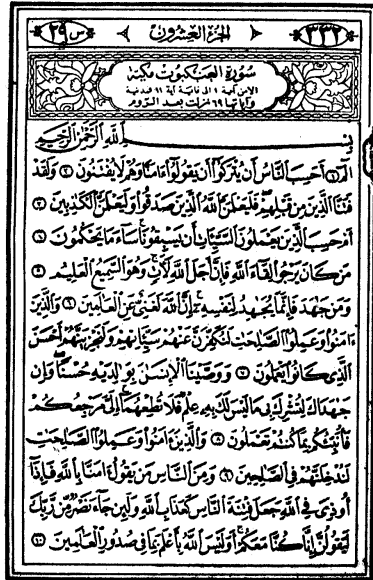 ٣٣٢ الجزء العشرون س ٢٩
سورة العنكبوت مكية
الا من آية ١ الى غاية آية ١١ فمدنية
وآياتها ٦٩ نزلت بعد الروم
بسم الله الرحمن الرحيم
الٓمٓ ١ أحسب الناس أن يتركوا أن يقولوا ءامنا وهم لا يفتنون ٢ ولقد
فتنا الذين من قبلهم فليعلمن الله الذين صدقوا وليعلمن الكاذبين ٣
أم حسب الذين يعملون السيئات أن يسبقونا ساء ما يحكمون ٤
من كان يرجوا لقاء الله فإن أجل الله لآت وهو السميع العليم ٥
ومن جاهد فإنما يجاهد لنفسه إن الله لغني عن العالمين ٦ والذين
ءامنوا وعملوا الصالحات لنكفرن عنهم سيئاتهم ولنجزينهم أحسن
الذي كانوا يعملون ٧ ووصينا الإنسان بوالديه حسنا وإن
جاهداك لتشرك بي ما ليس لك به علم فلا تطعهما إلي مرجعكم
فأنبئكم بما كنتم تعملون ٨ والذين ءامنوا وعملوا الصالحات
لندخلنهم في الصالحين ٩ ومن الناس من يقول ءامنا بالله فإذا
أوذي في الله جعل فتنة الناس كعذاب الله ولئن جاء نصر من ربك
ليقولن إنا كنا معكم أوليس الله بأعلم بما في صدور العالمين ١٠